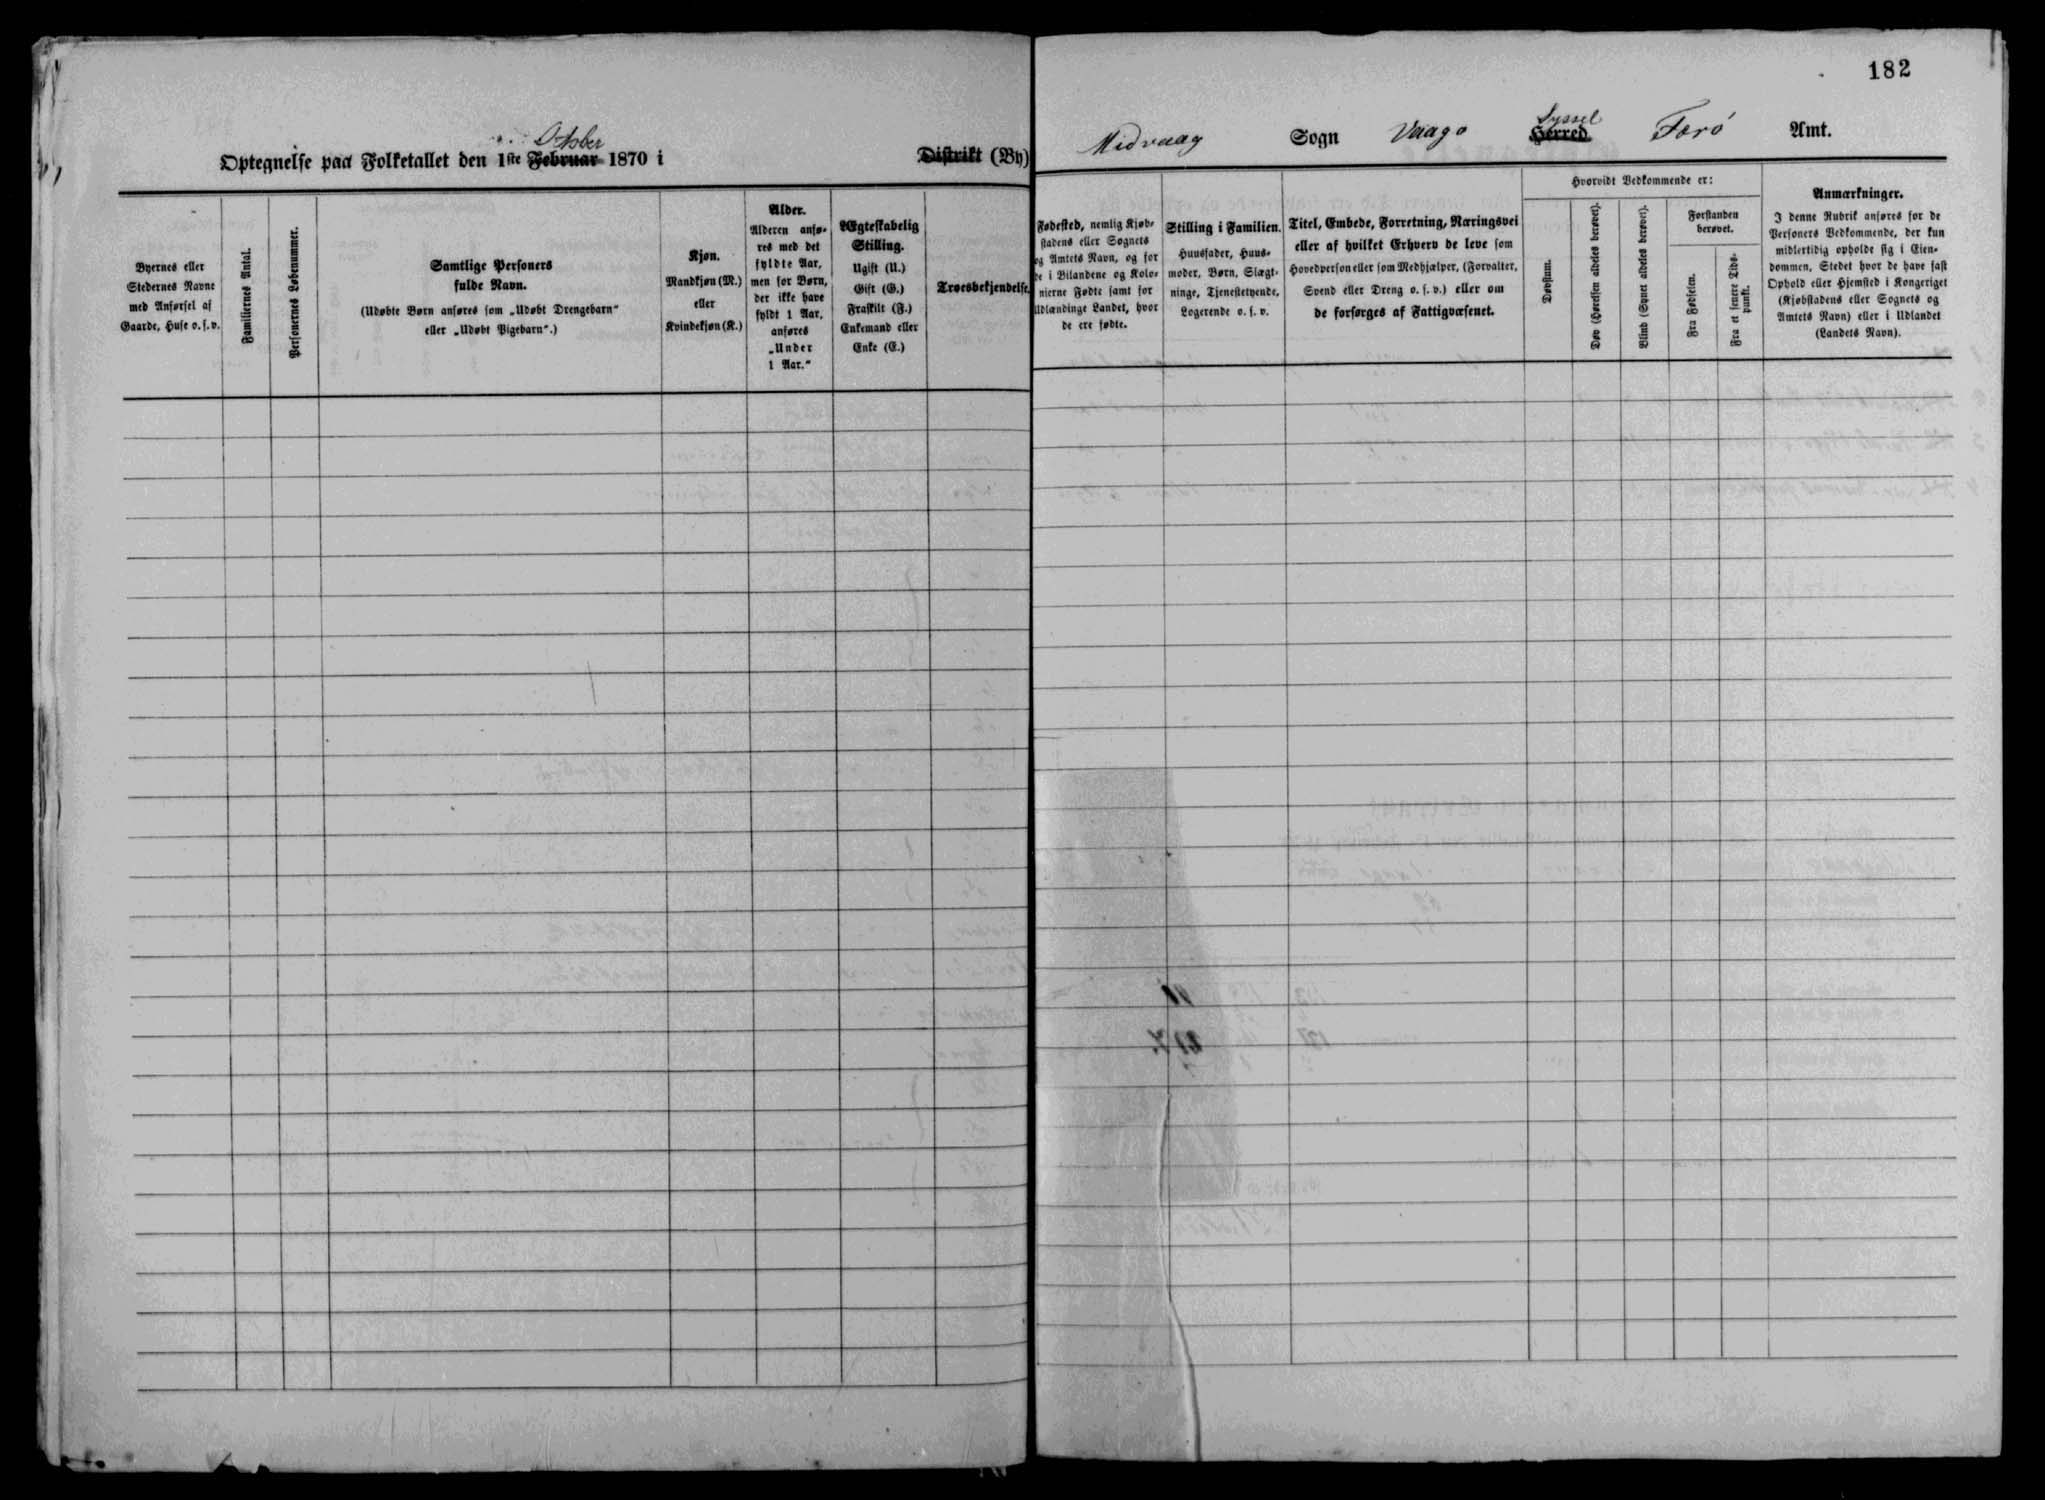 182
October
Optegnelse paa Folketallet den 1ste Februar 1870 i Distrikt (By)
Midvaag Sogn Vaagø Syssel Herred Færö Amt.
Byernes eller
Stedernes Navne
med Anførsel af
Gaarde, Huse o. s. v.
Familiernes Antal.
Personernes Løbenummer.
Samtlige Personers
fulde Navn.
(Udøbte Børn anføres som „Udøbt Drengebarn“
eller „Udøbt Pigebarn“.)
Kjøn.
Mandkjøn (M.)
eller
Kvindekjøn (K.)
Alder.
Alderen anfø-
res med det
fyldte Aar,
men for Børn,
der ikke have
fyldt 1 Aar,
anføres
„Under
1 Aar.“
Ægteskabelig
Stilling.
Ugift (U.)
Gift (G.)
Fraskilt (F.)
Enkemand eller
Enke (E.)
Troesbekjendelse.
Fødested, nemlig Kjøb-
stadens eller Sognets
og Amtets Navn, og for
de i Bilandene og Kolo-
nierne Fødte samt for
Udlændinge Landet, hvor
de ere fødte.
Stilling i Familien.
Huusfader, Huus-
moder, Børn, Slægt-
ninge, Tjenestetyende,
Logerende o. s. v.
Titel, Embede, Forretning, Næringsvei
eller af hvilket Erhverv de leve som
Hovedperson eller som Medhjælper, (Forvalter,
Svend eller Dreng o. s. v.) eller om
de forsørges af Fattigvæsenet.
Hvorvidt Vedkommende er:
Døvstum.
Døv (Hørelsen aldeles berøvet).
Blind (Synet aldeles berøvet).
Forstanden
berøvet.
Fra Fødselen.
Fra et senere Tids-
punkt.
Anmærkninger.
I denne Rubrik anføres for de
Personers Vedkommende, der kun
midlertidig opholde sig i Eien-
dommen, Stedet hvor de have fast
Ophold eller Hjemsted i Kongeriget
(Kjøbstadens eller Sognets og
Amtets Navn) eller i Udlandet
(Landets Navn).